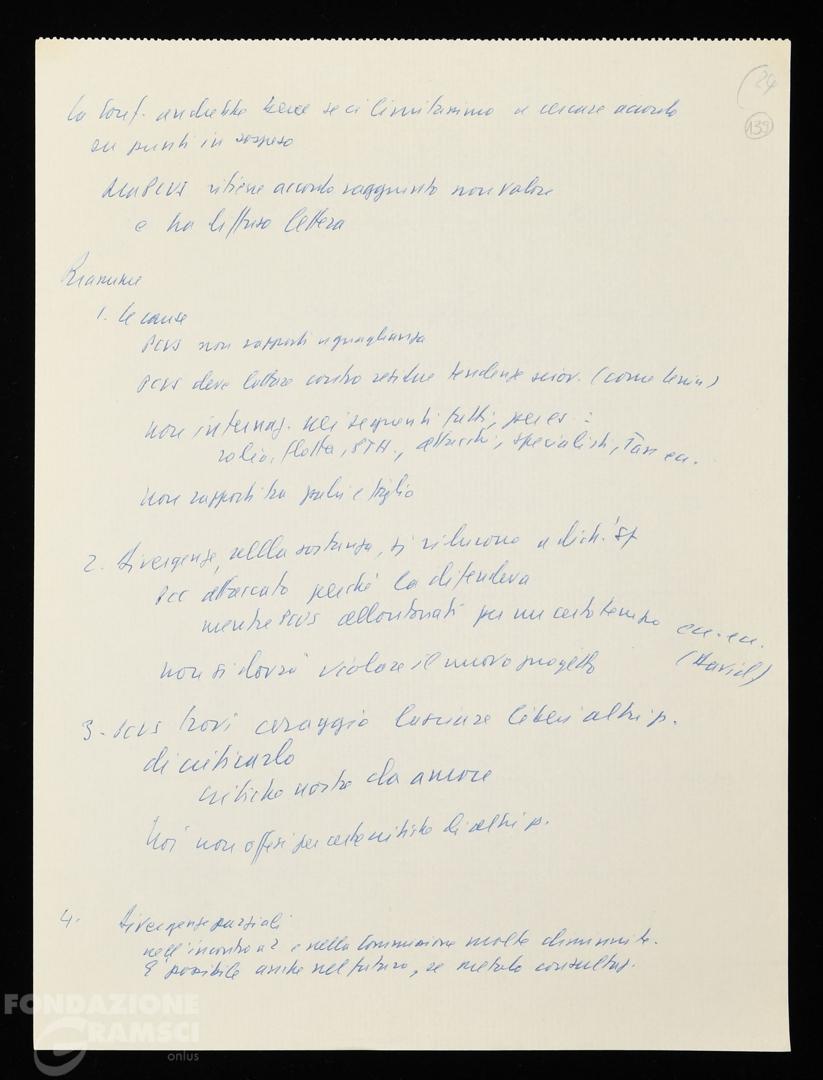 24
139
La Conf. andrebbe bene se ci limitassimo a cercare accordo
su punti in sospeso
Ma PCUS ritiene accordo raggiunto non valore
e ha diffuso lettera
Riassume
1. Le cause
PCUS non rapporti uguaglianza
PCUS deve lottare contro residue tendenze sciov. (come Lenin)
non internaz. nei seguenti fatti, per es:
radio, flotta, attacchi, specialisti, Tass
non rapporti tra padre e figlio
2. Divergenze, nella sostanza, si riducono a dich. '57
PCC attaccato perché la difendeva
mentre PCUS allontanati per un certo tempo
(David)
non si dovrà violare il nuovo progetto
3. PCUS trovi coraggio lasciare liberi altri p.
di criticarlo
critiche nostre da amore
Noi non offesi per certe critiche di altri p.
4. Divergenze parziali
nell'incontro a 2 e nella Commissione molto diminuite.
E' possibile anche nel futuro, se metodo consultaz.
FONDAZIONE
GRAMSCI
onlus